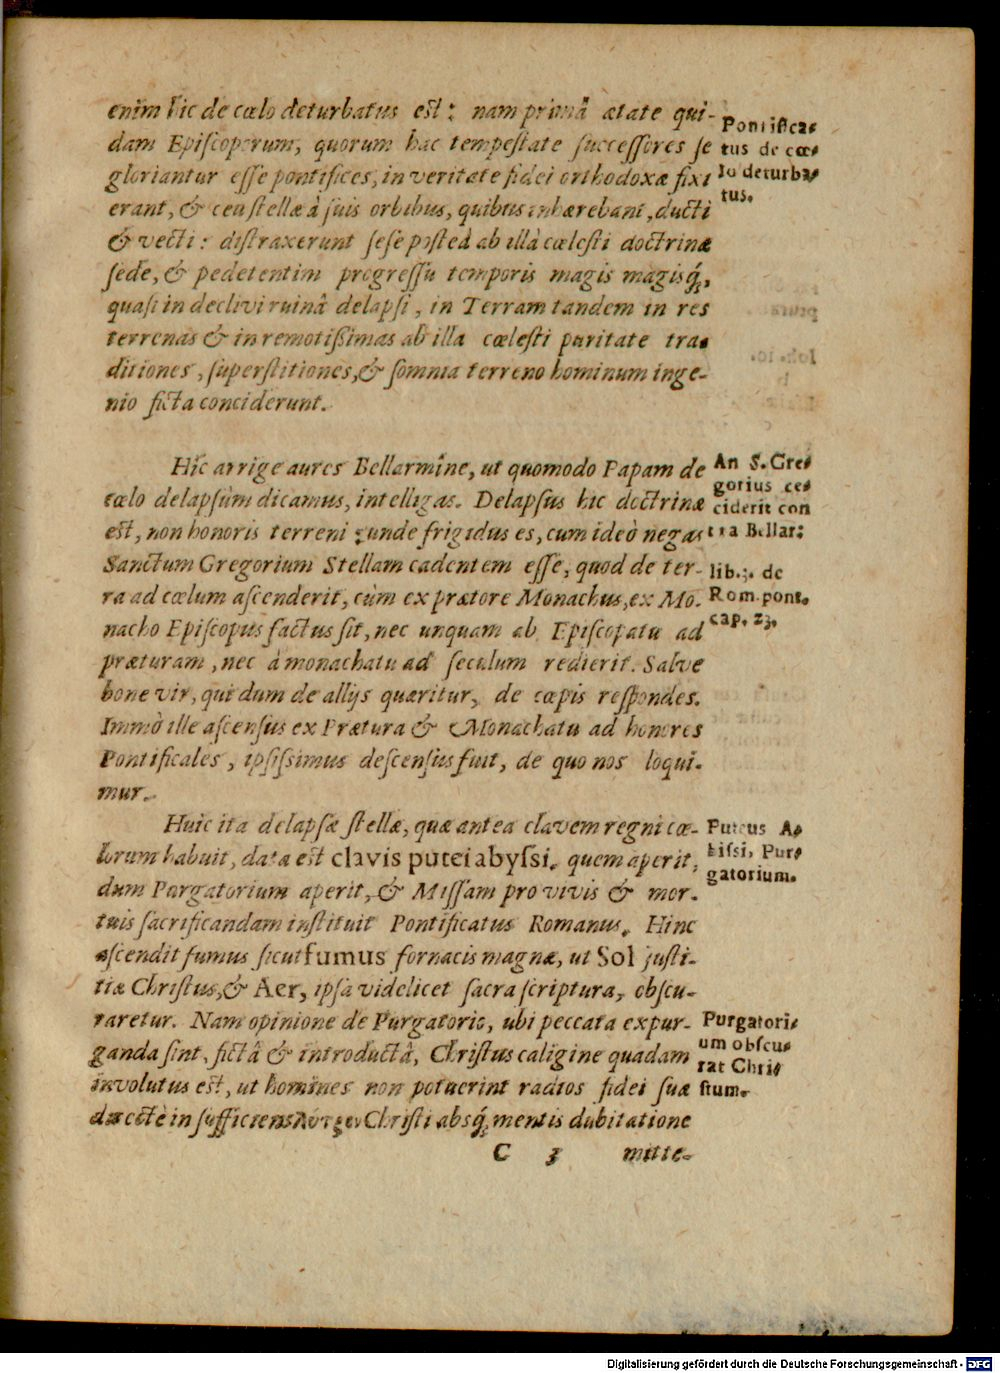 enim hic de cœlo deturbatus est: nam primâ ætate qui-
dam Episcoporum, quorum hac tempestate successores se
gloriantur esse pontifices, in veritate fidei orthodoxæ fixi
erant, & ceu stellæ à suis orbibus, quibus inhærebant, ducti
& vecti: distraxerunt sese posteà ab illà cœlesti doctrinæ
sede, & pedetentim progressu temporis magis magisq́;,
quasi in declivi ruinâ delapsi, in Terram tandem in res
terrenas & in remotißimas ab illa cœlesti puritate tra-
ditiones, superstitiones, & somnia terreno hominum inge-
nio ficta conciderunt.
Pontifica-
tus de cœ-
lo deturba-
tus.
Hic arrige aures Bellarmine, ut quomodo Papam de
cœlo delapsum dicamus, intelligas. Delapsus hic doctrinæ
est, non honoris terreni: unde frigidus es, cum ideò negas
Sanctum Gregorium Stellam cadentem esse, quod de ter-
ra ad cœlum ascenderit, cùm ex prætore Monachus, ex Mo-
nacho Episcopus factus sit, nec unquam ab Episcopatu ad
præturam, nec à monachatu ad seculum redierit. Salve
bone vir, qui dum de allijs quæritur, de cœpis respondes.
Immò ille ascensus ex Prætura & Monachatu ad honores
Pontificales, ipsissimus descensus fuit, de quo nos loqui-
mur.
An S. Gre-
gorius ce-
ciderit con
tra Bellar:
lib. 3. de
Rom. pont.
cap. 23.
Huic ita delapsæ stellæ, quæ antea clavem regni cœ-
lorum habuit, data est clavis putei abyssi, quem aperit,
dum Purgatorium aperit, & Missam pro vivis & mor-
tuis sacrificandam instituit Pontificatus Romanus. Hinc
ascendit fumus sicut fumus fornacis magnæ, ut Sol justi-
tiæ Christus, & Aer, ipsa videlicet sacra scriptura, obscu-
raretur. Nam opinione de Purgatorio, ubi peccata expur-
ganda sint, fictâ & introductâ, Christus caligine quadam
involutus est, ut homines non potuerint radios fidei suæ
directè in sufficiens Christi absq́; mentis dubitatione
Puteus A-
bissi, Pur-
gatorium.
Purgatori-
um obscu-
rat Chri-
stum.
C 3 mitte-
Digitalisierung gefördert durch die Deutsche Forschungsgemeinschaft - DFG